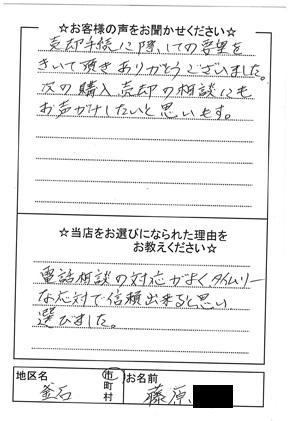 ☆お客様の声をお聞かせください☆
売却手続に際しての要望を
きいて頂きありがとうございました。
次の購入売却の相談にも
お声がけしたいと思います。
☆当店をお選びになられた理由を
お教えください☆
電話相談の対応がよくタイムリー
な応対で信頼出来ると思い
選びました。
地区名 釜石 市町村 お名前 藤原